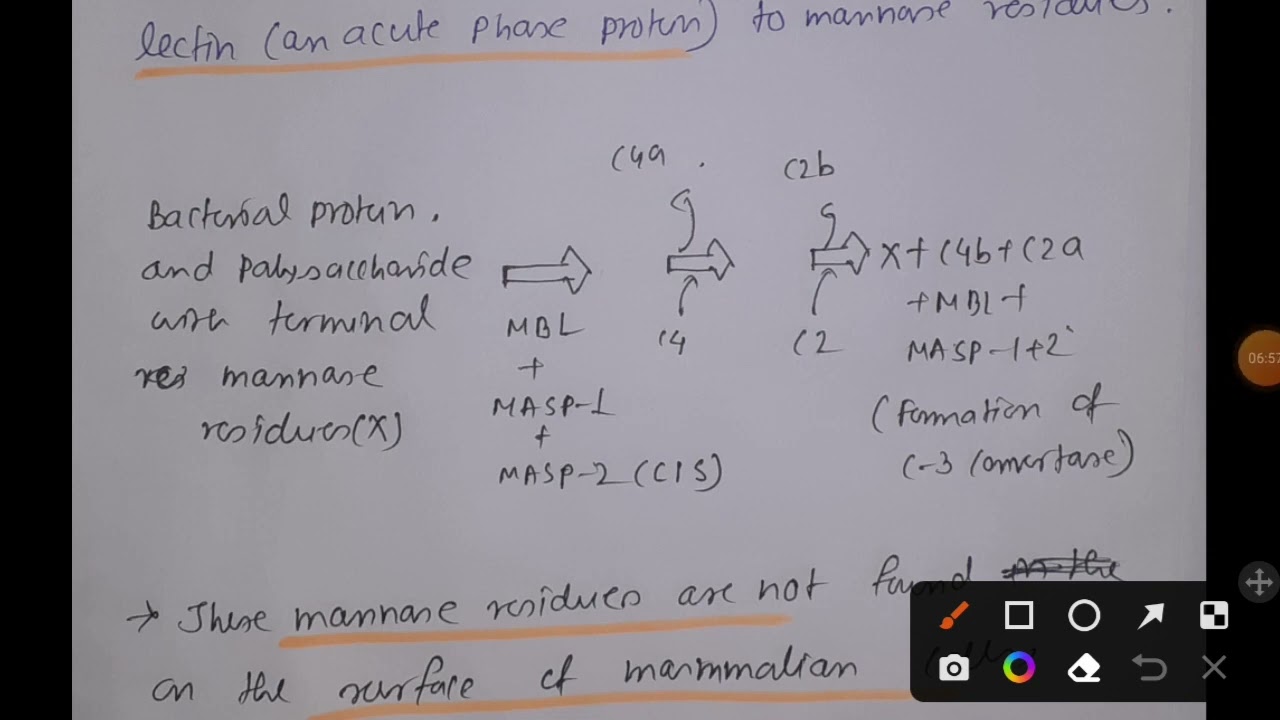 lectin (an acute phase protein) to mannase residues.
C4a .
C2b
Bacterial protein.
and Polysaccharide
with terminal
res mannase
residues(X)
MBL
+
MASP-1
+
MASP-2 (C1S)
C4
C2
X+C4b+C2a
+MBL+
MASP-1+2
(Formation of
C-3 Convertase)
→ These mannase residues are not found on the
on the surface of mammalian
06:57